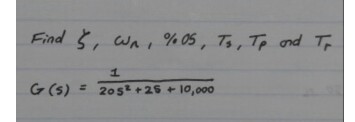 Find ζ, ωn, %OS, Ts, Tp and Tr
G(s) = 1 / 20s² + 2s + 10,000